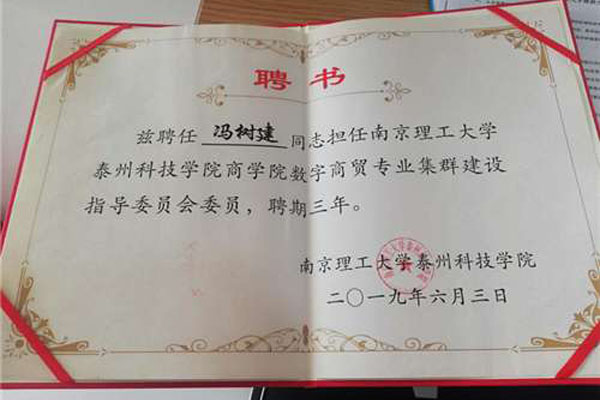 聘书
兹聘任 冯树建 同志担任南京理工大学
泰州科技学院商学院数字商贸专业集群建设
指导委员会委员，聘期三年。
南京理工大学泰州科技学院
二〇一九年六月三日